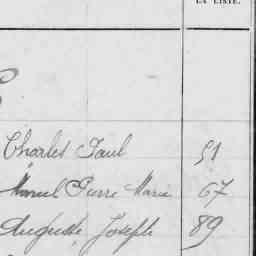 LA LISTE.
Charles Paul 51
Marcel Pierre Marie 67
Auguste Joseph 89